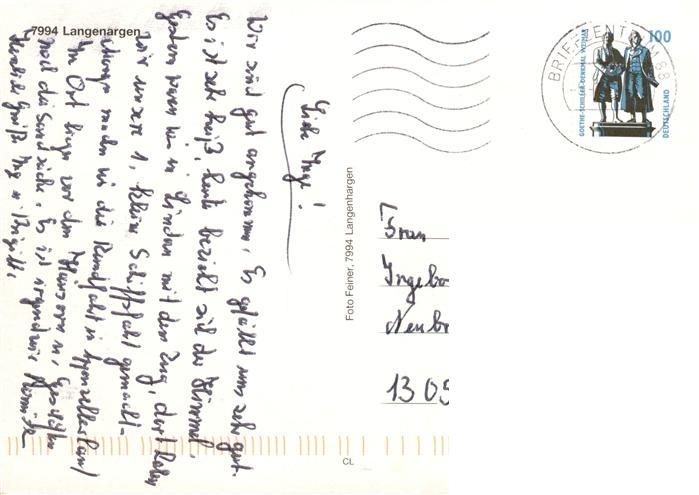 7994 Langenargen
Liebe Inge!
Wir sind gut angekommen, Es gefällt uns sehr gut.
Es ist sehr heiß, heute bezieht sich der Himmel,
Gestern waren wir in Lindau mit dem Zug, dort haben
wir unsere 1, kleine Schiffsfahrt gemacht-
morgen machen wir die Rundfahrt in Appenzellerland
Im Ort liegen vor den Häusern u, Geschäften
noch die Sandsäcke, Es ist irgendwie
Herzliche Grüße Ing u. Brigitte
Foto Feiner, 7994 Langenhargen
CL
BRIEFZENTRUM 88
GOETHE-SCHILLER-DENKMAL WEIMAR
100
DEUTSCHLAND
Frau
Ingebo
Neub
13 05